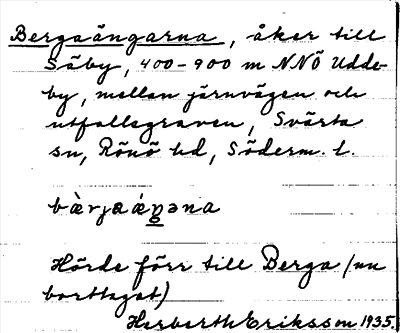 Bergaängarna, åker till
Säby, 400-900 m NNÖ Udde-
by, mellan järnvägen och
utfallsgraven, Svärta
sn, Rönö hd, Söderm. l.
bà̈rjaáŋəna
Hörde förr till Berga (nu
borttaget)
Herbert Eriksson 1935.